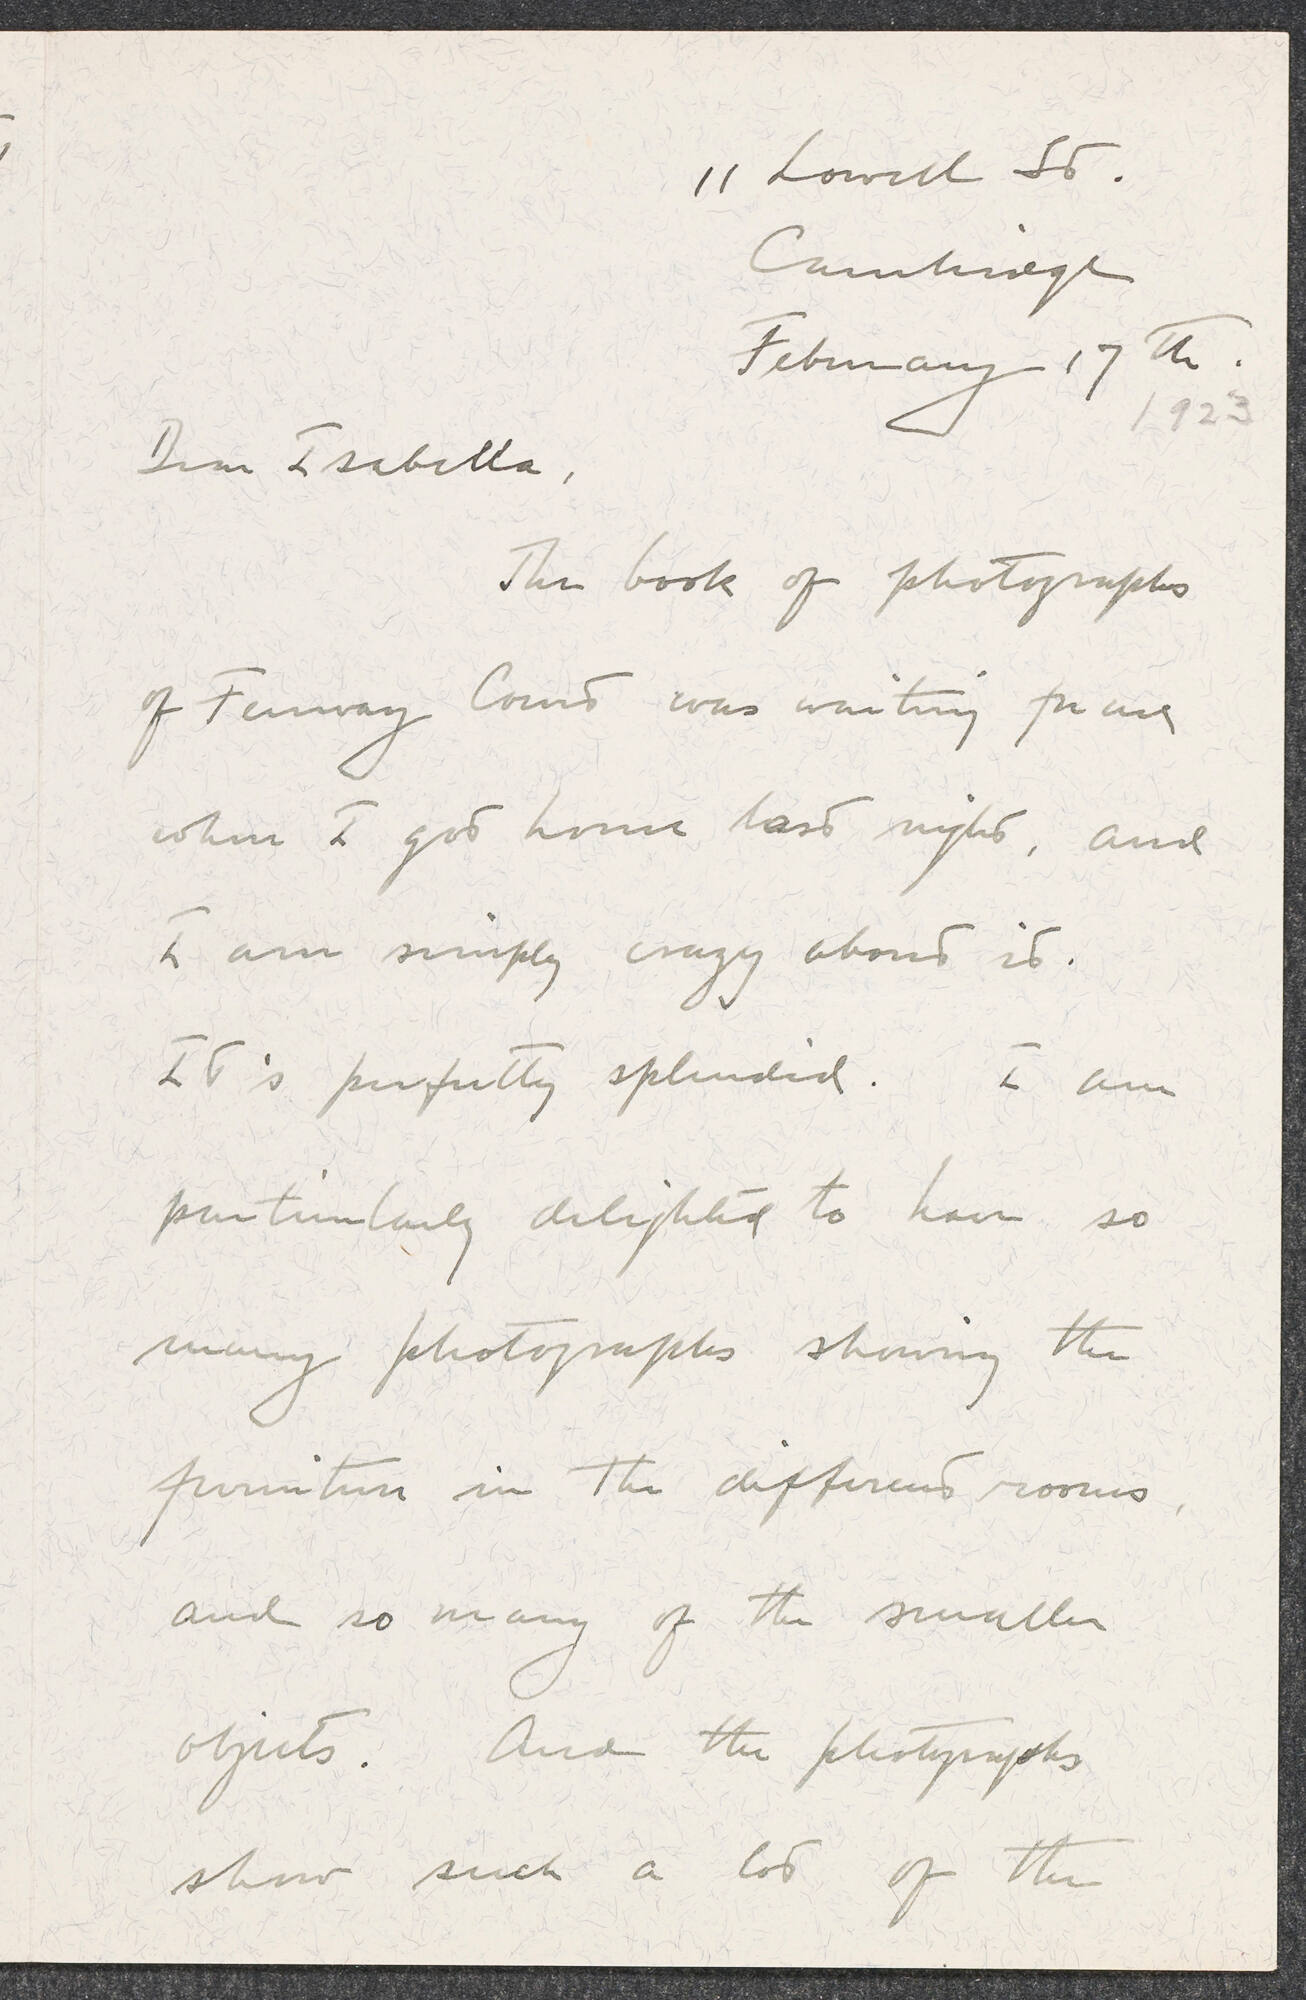 11 Lowell St.
Cambridge
February 17th.
1923
Dear Isabella,
The book of photographs
of Fenway Court was waiting for me
when I got home last night, and
I am simply crazy about it.
It's perfectly splendid. I am
particularly delighted to have so
many photographs showing the
furniture in the different rooms,
and so many of the smaller
objects. And the photographs
show such a lot of the